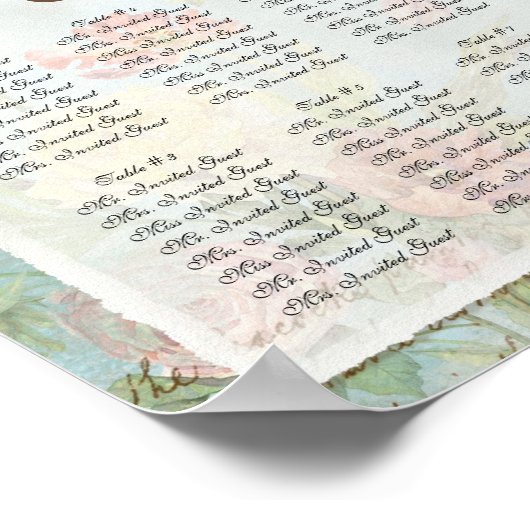 Guest
Guest
Invited Guest
Invited Guest
Mr. Invited Guest
Mrs. Invited Guest
Table # 4
Mr. Invited Guest
Mrs. Invited Guest
Miss Invited Guest
Mr. Invited Guest
Miss Invited Guest
Mr. Invited Guest
Mrs. Invited Guest
Table # 3
Mr. Invited Guest
Mrs. Invited Guest
Miss Invited Guest
Mr. Invited Guest
Miss Invited Guest
Mr. Invited Guest
Mrs. Invited Guest
Invited Guest
Miss Invited Guest
Mr. Invited Guest
Mrs. Invited Guest
Table # 5
Mr. Invited Guest
Mrs. Invited Guest
Miss Invited Guest
Mr. Invited Guest
Miss Invited Guest
Mr. Invited Guest
Mrs. Invited Guest
Table # 7
Mr. Invited
Mrs. Invited
Miss Invited
Mr. Invited
Miss
Mr.
Mrs.
The